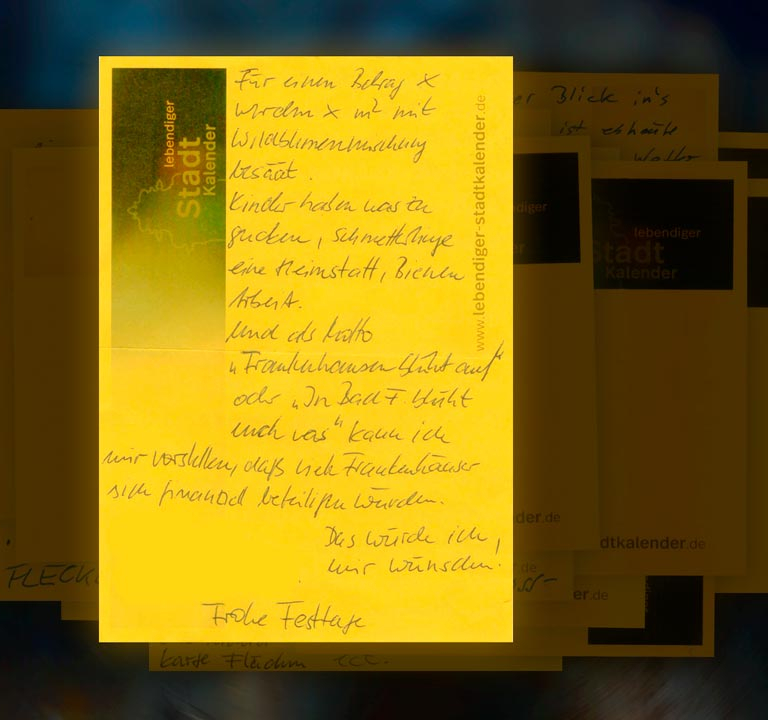 Für einen Betrag X
werden X m² mit
Wildblumenmischung
besäät.
Kinder haben was zu
gucken, Schmetterlinge
eine Heimstatt, Bienen
Arbeit.
Und als Motto
„Frankenhausen blüht auf"
oder „In Bad F. blüht
euch was" kann ich
mir vorstellen, daß viele Frankenhäuser
sich finanziell beteiligen würden.
Das würde ich
mir wünschen!
Frohe Festtage
lebendiger
Stadt
Kalender
www.lebendiger-stadtkalender.de
Blick in's
ist es heute
lebendiger
lebendiger
Stadt
Kalender
.de
stadtkalender.de
FLECK
.de
karge Flächen ecc.